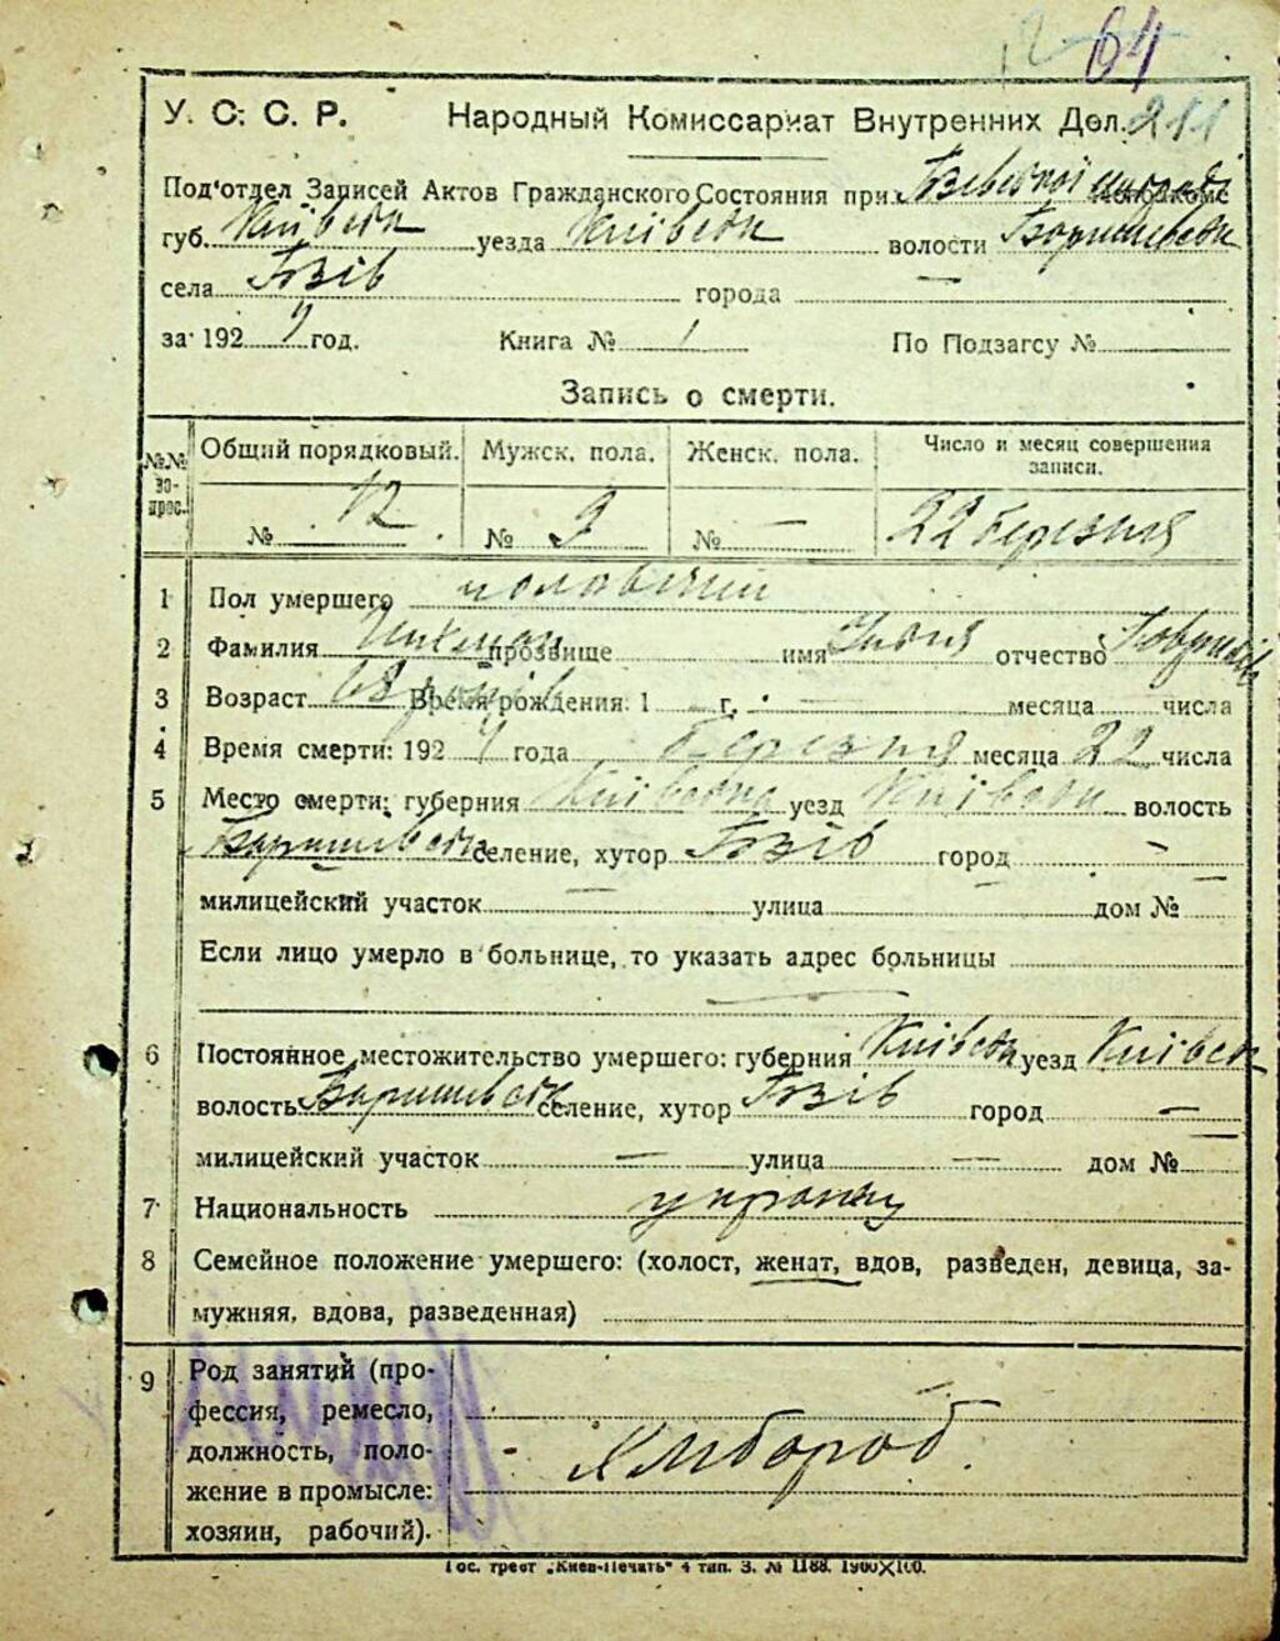 64
211
У. С. С. Р. Народный Комиссариат Внутренних Дел.
Под'отдел Записей Актов Гражданского Состояния при
губ. Київськ уезда Київськ волости Баришевськ
села Гвзів города —
за 192 год. Книга № 1 По Подзагсу №
Запись о смерти.
№№ во- прос. Общий порядковый. Мужск. пола. Женск. пола. Число и месяц совершения записи.
№ 12 № 9 № — 22 Березня
1 Пол умершего чоловічий
2 Фамилия прозвище имя отчество
3 Возраст 68 років Время рождения: 1 — г. — месяца числа
4 Время смерти: 192 года Березня месяца 22 числа
5 Место смерти: губерния Київська уезд Київськ волость
Баришевськ селение, хутор город —
милицейский участок — улица — дом № —
Если лицо умерло в больнице, то указать адрес больницы
—
6 Постоянное местожительство умершего: губерния Київськ уезд Київськ
волость Баришевськ селение, хутор город —
милицейский участок — улица — дом № —
7 Национальность українец
8 Семейное положение умершего: (холост, женат, вдов, разведен, девица, за-
мужняя, вдова, разведенная)
9 Род занятий (про-
фессия, ремесло,
должность, поло-
жение в промысле:
хозяин, рабочий).
Хлібороб.
Гос. трест „Киев-Печать“ 4 тип. З. № 1188. 1900×100.